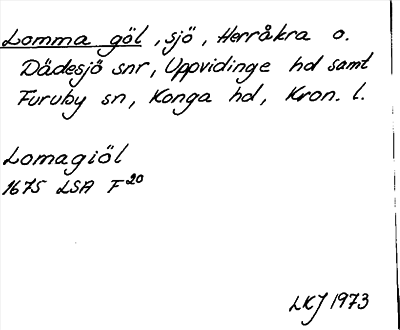 Lomma göl, sjö, Herråkra o.
Dädesjö snr, Uppvidinge hd samt
Furuby sn, Konga hd, Kron. l.
Lomagiöl
1675 LSA F20
LKJ 1973